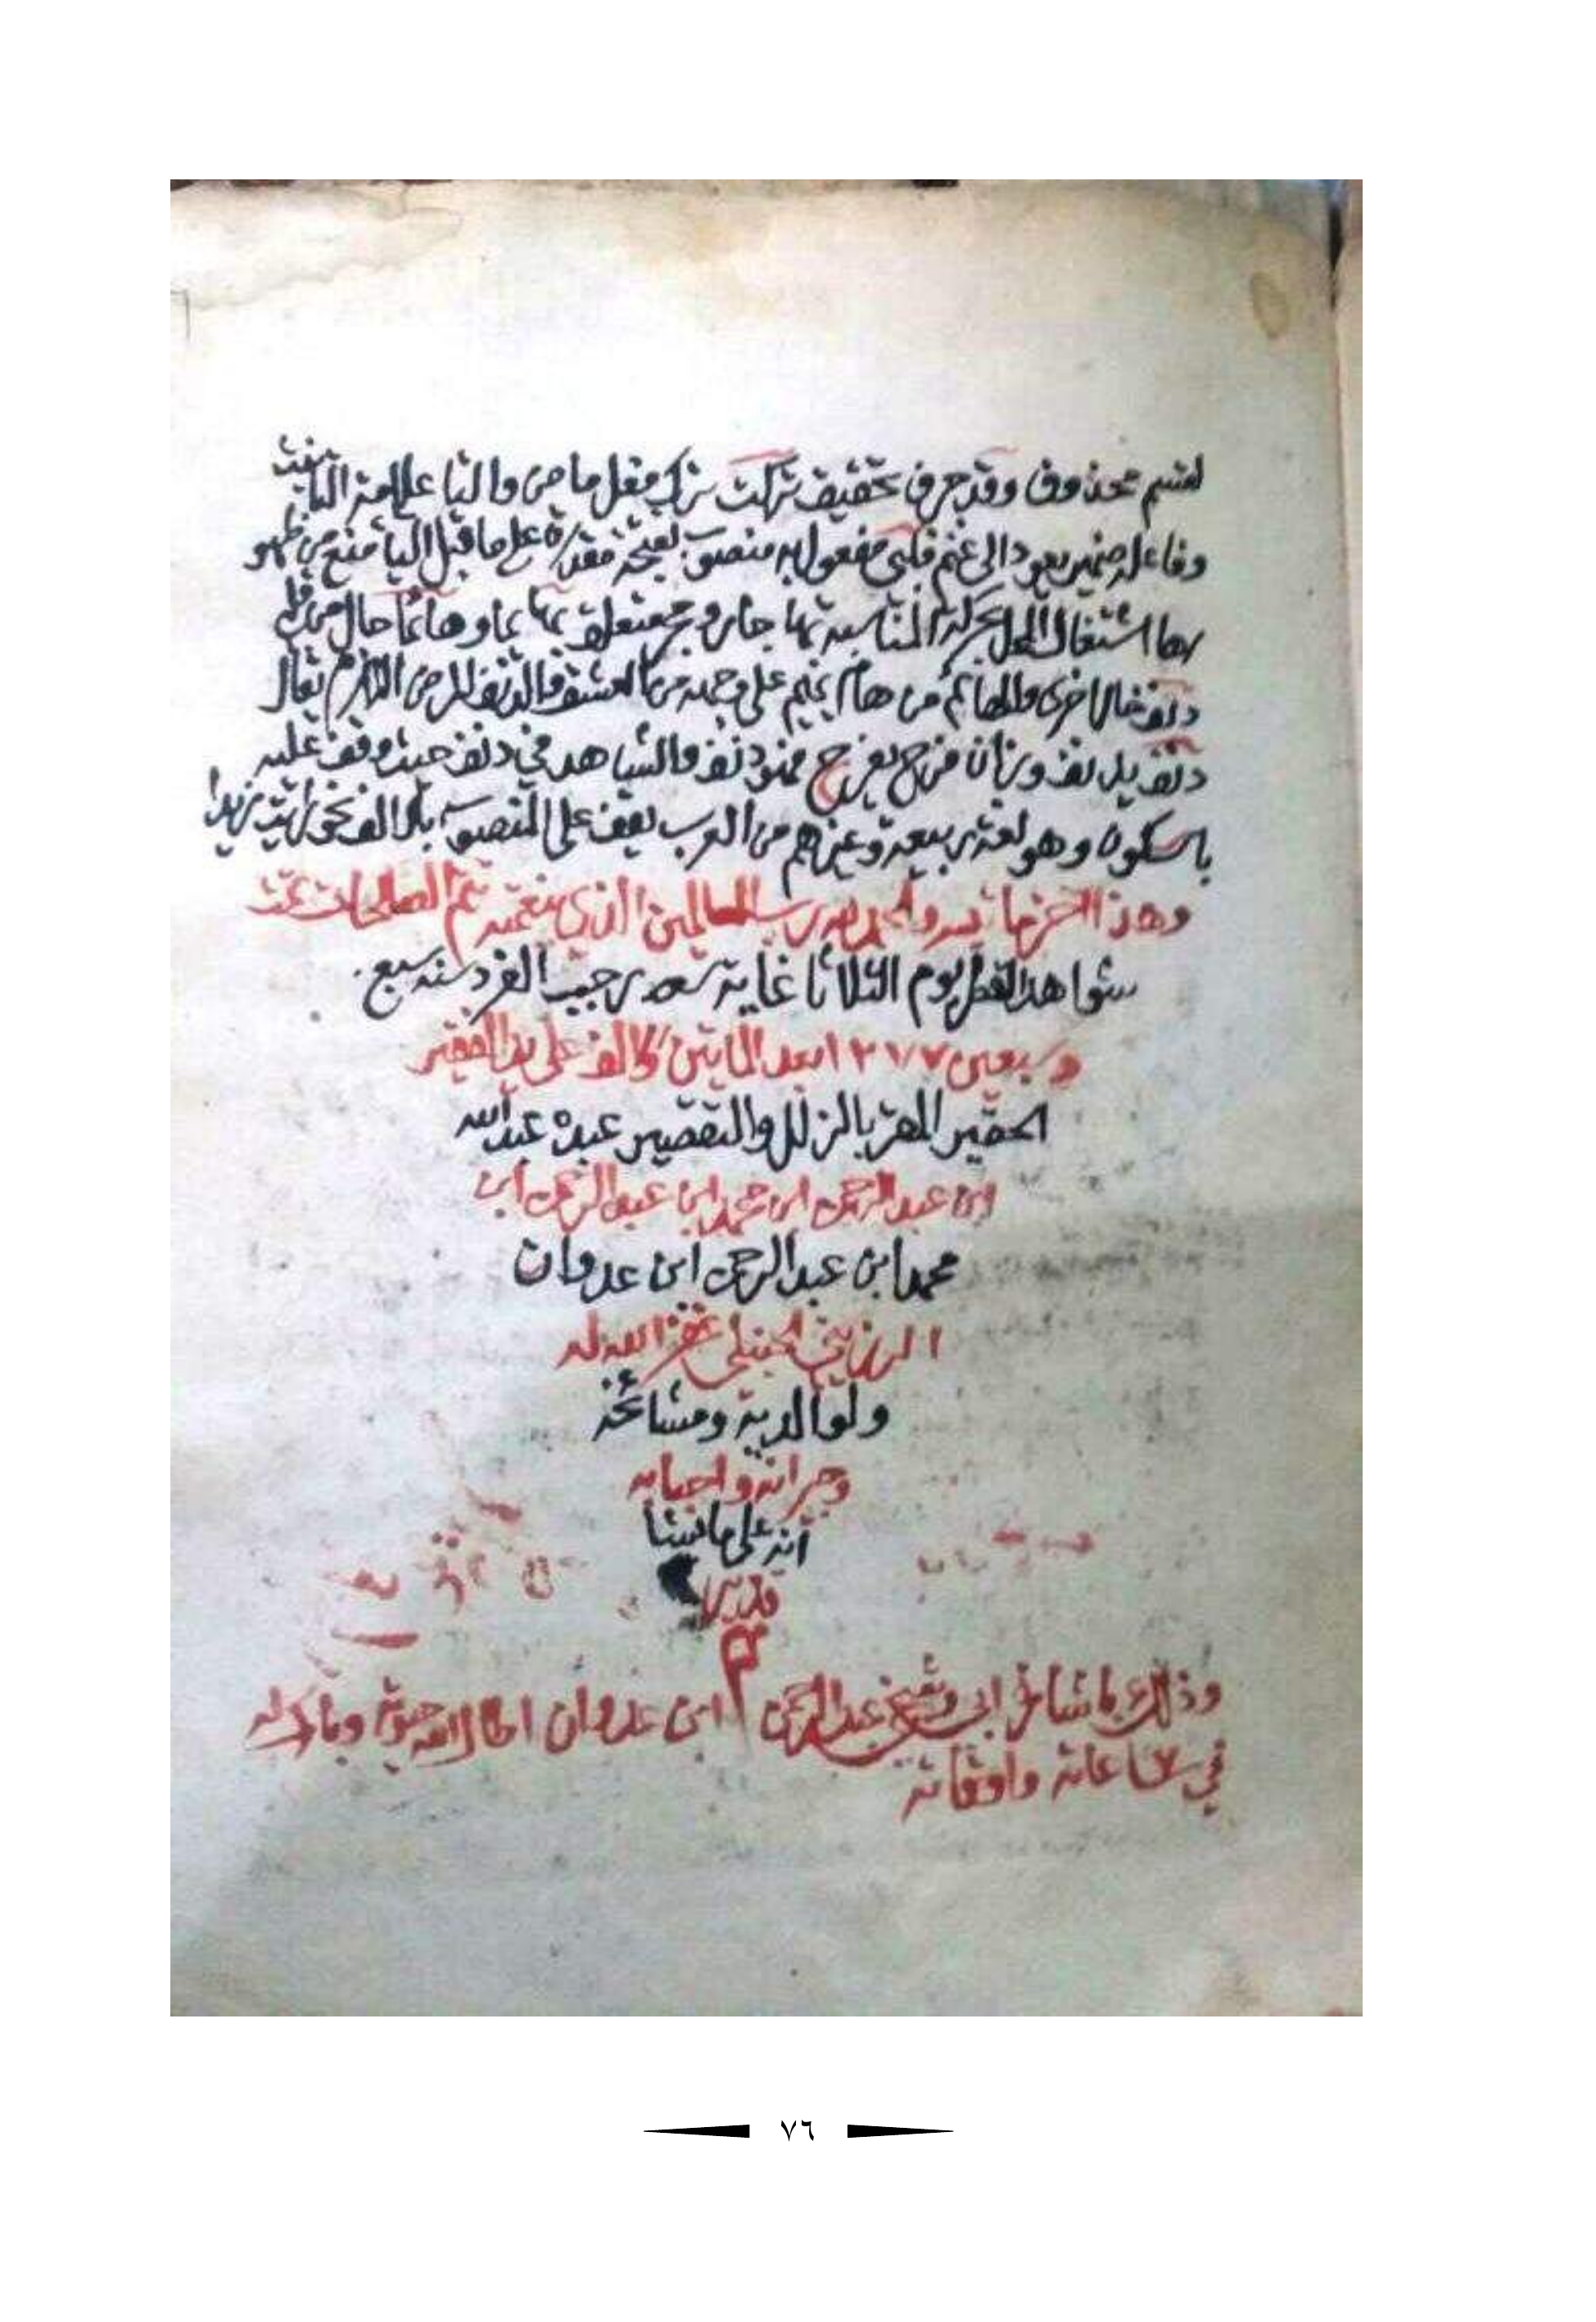 لقسم محذوف وقد حرف تحقيق تركت ترك فعل ماض والتا علامة التانيث
وفاعله ضمير يعود الى غنم قلبي مفعول به منصوب بفتحة مقدرة على ما قبل اليا منع من ظهو
رها اشتغال المحل بحركة المناسبة بها جار ومجـ متعلق بهايما وهائما حال من قلبي
دنف حال اخرى والهائم من هام يهيم على وجهه من العشق والدنف المرض اللازم يقال
دنف يدنف وزان فرح يفرح فهو دنف والشاهد في دنف حيث وقف عليه
بالسكون وهو لغة ربيعة وغيرهم من العرب يقف على المنصوب بالالف نحو رايت زيدا
وهذا اخر ما تيسر والحمد لله رب العالمين الذي بنعمته تتم الصالحات تمت
شواهد القطر يوم الثلاثا غاية شهر رجب الفرد سنه سبع
وسبعين ١٢٧٧ بعد المايتين والالف على يد الفقير
الحقير المقر بالزلل والتقصير عبده عبد الله
ابن عبد الرحمن ابن محمد ابن عبد الرحمن ابن
محمد ابن عبد الرحمن ابن عدوان
الرزيني الحنبلي غفر الله له
ولوالديه ومشائخه
وجرانه واحبابه
انه على ما يشا
قدير
تم
وذلك باشارة ابي وشيخي عبد الرحمن ابن عدوان اطال الله حيوته وبارك له
في ساعاته واوقاته
٧٦